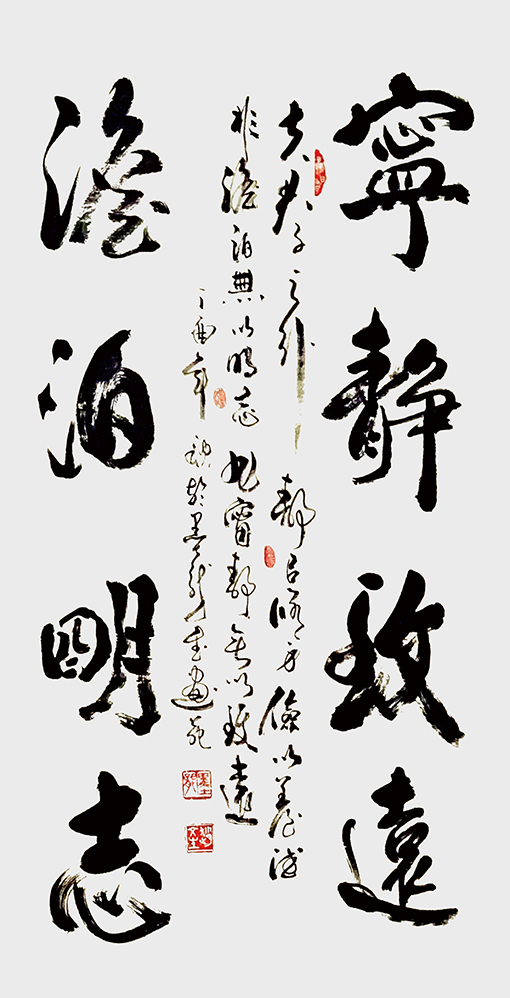 寧靜致遠
夫君子之行靜以修身儉以養德
非澹泊無以明志非寧靜無以致遠
丁酉年 書畫苑
澹泊明志